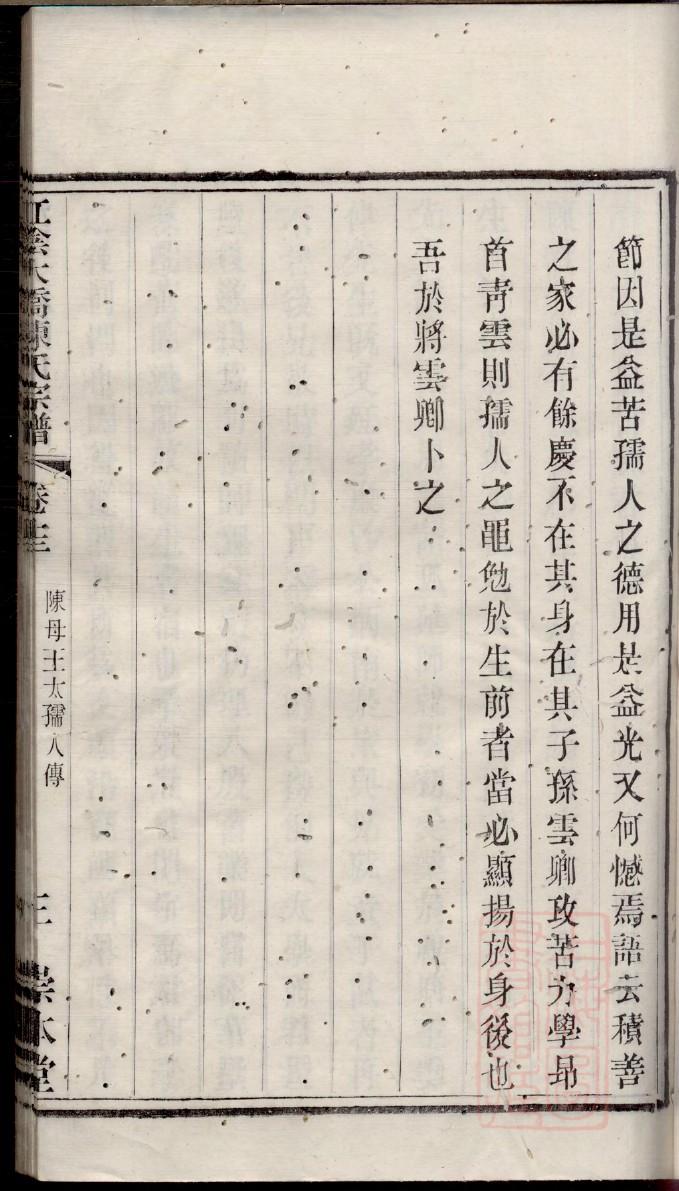 節因是益苦孺人之德用是益光又何憾焉語云積善
之家必有餘慶不在其身在其子孫雲卿攻苦力學昂
首青雲則孺人之黽勉於生前者當必顯揚於身後也
吾於將雲卿卜之
江陰大橋陳氏宗譜
卷十三
陳母王太孺人傳
三
崇本堂